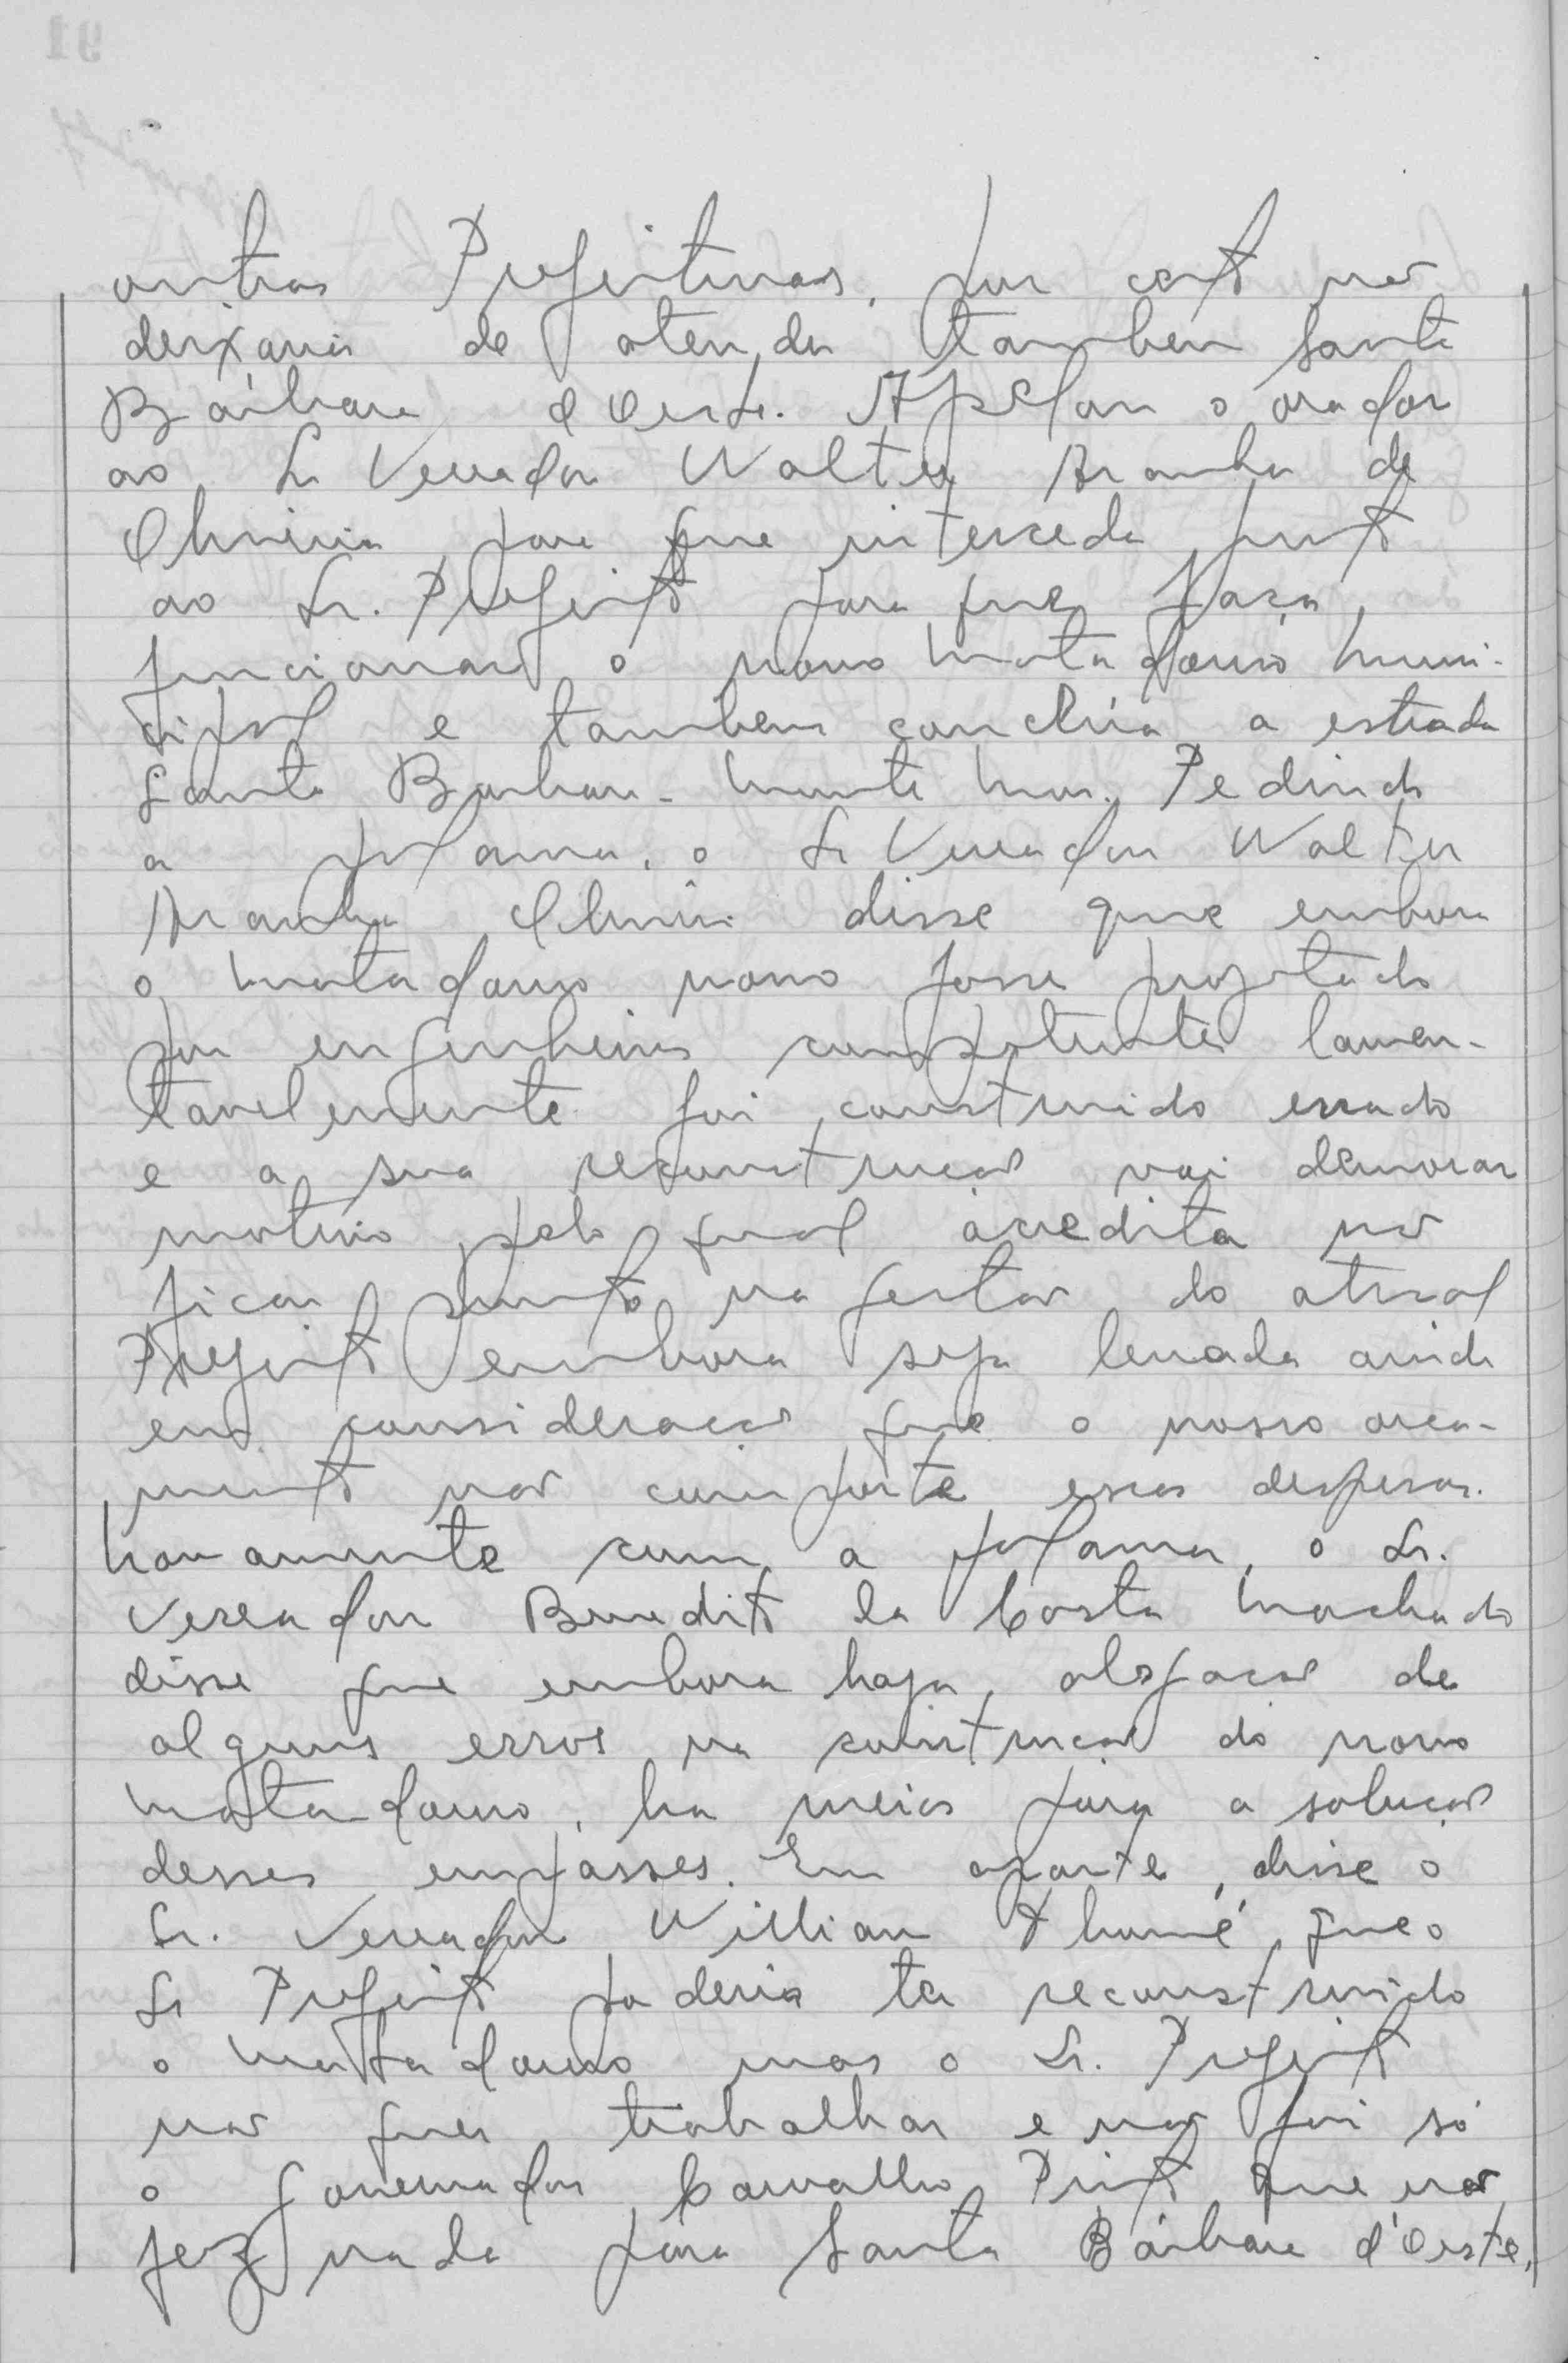 outras Prefeituras, por certo não
deixaria de atender tambem Santa
Bárbara d'Oeste. Apelou o orador
ao Sr Vereador Walter Aranha de
Oliveira para que interceda junto
ao Sr. Prefeito para que faça
funcionar o novo matadouro muni-
cipal e tambem conclúa a estrada
Santa Barbara - Monte Mor. Pedindo
a palavra, o Sr Vereador Walter
Aranha Oliveira disse que embora
o matadouro novo fosse projetado
por engenheiros competentes lamen-
tavelmente foi construido errado
e a sua reconstrução vai demorar
motivo pelo qual acredita não
ficar pronto na gestão do atual
Prefeito embora seja levada ainda
em consideração que o nosso orça-
mento não comporta essas despesas.
Novamente com a palavra, o Sr.
Vereador Benedito da Costa Machado
disse que embora haja, alegação de
alguns erros na construção do novo
matadouro, ha meios para a solução
desses empasses. Em aparte, disse o
Sr. Vereador Willian Thomé, que o
Sr Prefeito poderia ter reconstruido
o matadouro mas o Sr. Prefeito
não quer trabalhar e não foi só
o Governador Carvalho Pinto que não
fez nada para Santa Bárbara d'Oeste,